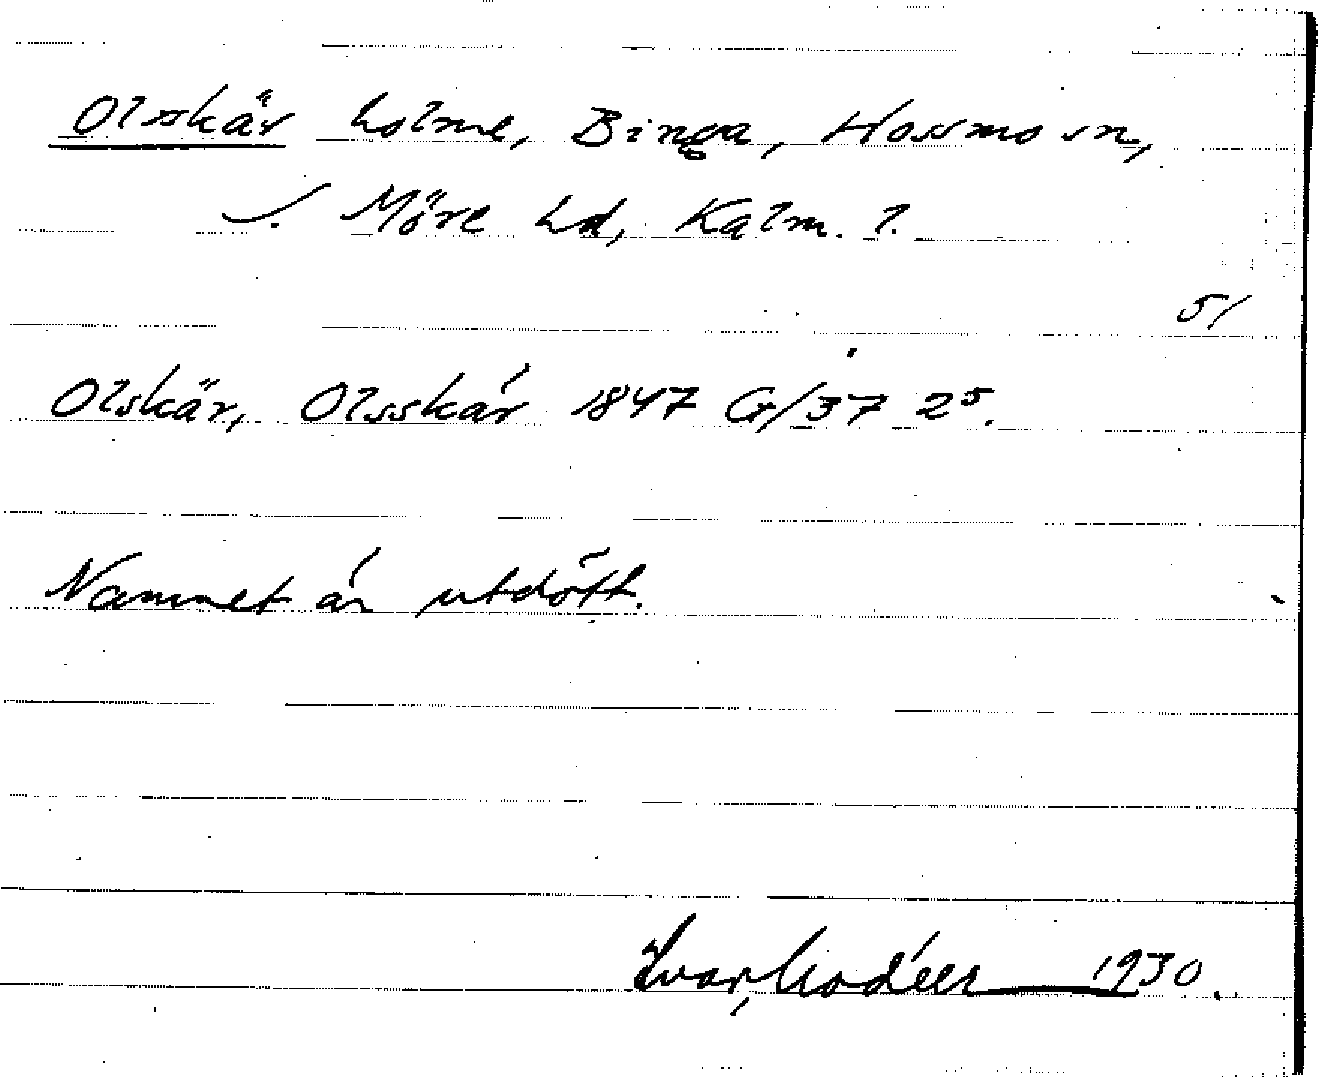 Olsskär holme, Binga, Hossmo sn,
N. Möre hd, Kalm. l.
51
Olskär, Olsskär 1847 G/37 25.
Namnet är utdött.
Ivar Modéer 1930.